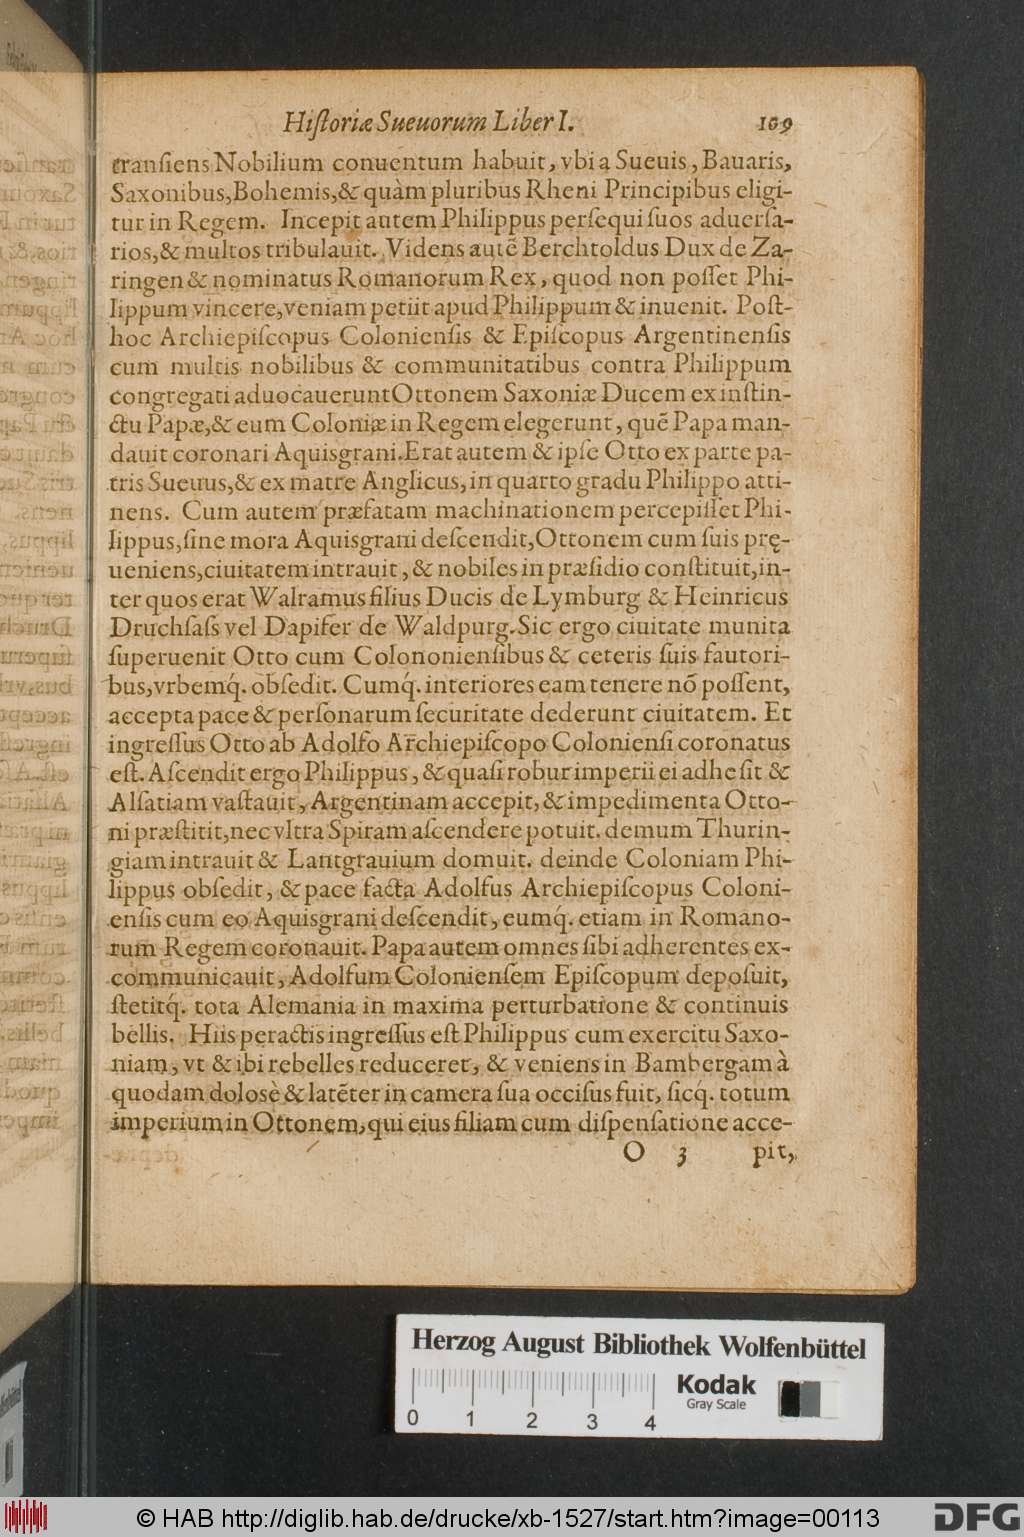 Hiſtoriæ Sueuorum Liber I. 109
tranſiens Nobilium conuentum habuit, vbi a Sueuis, Bauaris,
Saxonibus, Bohemis, & quàm pluribus Rheni Principibus eligi-
tur in Regem. Incepit autem Philippus perſequi ſuos aduerſa-
rios, & multos tribulauit. Videns autẽ Berchtoldus Dux de Za-
ringen & nominatus Romanorum Rex, quod non poſſet Phi-
lippum vincere, veniam petiit apud Philippum & inuenit. Poſt-
hoc Archiepiſcopus Colonienſis & Epiſcopus Argentinenſis
cum multis nobilibus & communitatibus contra Philippum
congregati aduocauerunt Ottonem Saxoniæ Ducem ex inſtin-
ctu Papæ, & eum Coloniæ in Regem elegerunt, quẽ Papa man-
dauit coronari Aquisgrani. Erat autem & ipſe Otto ex parte pa-
tris Sueuus, & ex matre Anglicus, in quarto gradu Philippo atti-
nens. Cum autem præfatam machinationem percepiſſet Phi-
lippus, ſine mora Aquisgrani deſcendit, Ottonem cum ſuis prę-
ueniens, ciuitatem intrauit, & nobiles in præſidio conſtituit, in-
ter quos erat Walramus filius Ducis de Lymburg & Heinricus
Druchſaſs vel Dapifer de Waldpurg. Sic ergo ciuitate munita
ſuperuenit Otto cum Colononienſibus & ceteris ſuis fautori-
bus, vrbemq́. obſedit. Cumq́. interiores eam tenere nõ poſſent,
accepta pace & perſonarum ſecuritate dederunt ciuitatem. Et
ingreſſus Otto ab Adolfo Archiepiſcopo Colonienſi coronatus
eſt. Aſcendit ergo Philippus, & quaſi robur imperii ei adheſit &
Alſatiam vaſtauit, Argentinam accepit, & impedimenta Otto-
ni præſtitit, nec vltra Spiram aſcendere potuit. demum Thurin-
giam intrauit & Lantgrauium domuit. deinde Coloniam Phi-
lippus obſedit, & pace facta Adolfus Archiepiſcopus Coloni-
enſis cum eo Aquisgrani deſcendit, eumq́. etiam in Romano-
rum Regem coronauit. Papa autem omnes ſibi adherentes ex-
communicauit, Adolfum Colonienſem Epiſcopum depoſuit,
ſtetitq́. tota Alemania in maxima perturbatione & continuis
bellis. Hiis peractis ingreſſus eſt Philippus cum exercitu Saxo-
niam, vt & ibi rebelles reduceret, & veniens in Bambergam à
quodam dolosè & latẽter in camera ſua occiſus fuit, ſicq́. totum
imperium in Ottonem, qui eius filiam cum diſpenſatione acce-
O 3 pit,
Herzog August Bibliothek Wolfenbüttel
Kodak
Gray Scale
0 1 2 3 4
© HAB http://diglib.hab.de/drucke/xb-1527/start.htm?image=00113
DFG